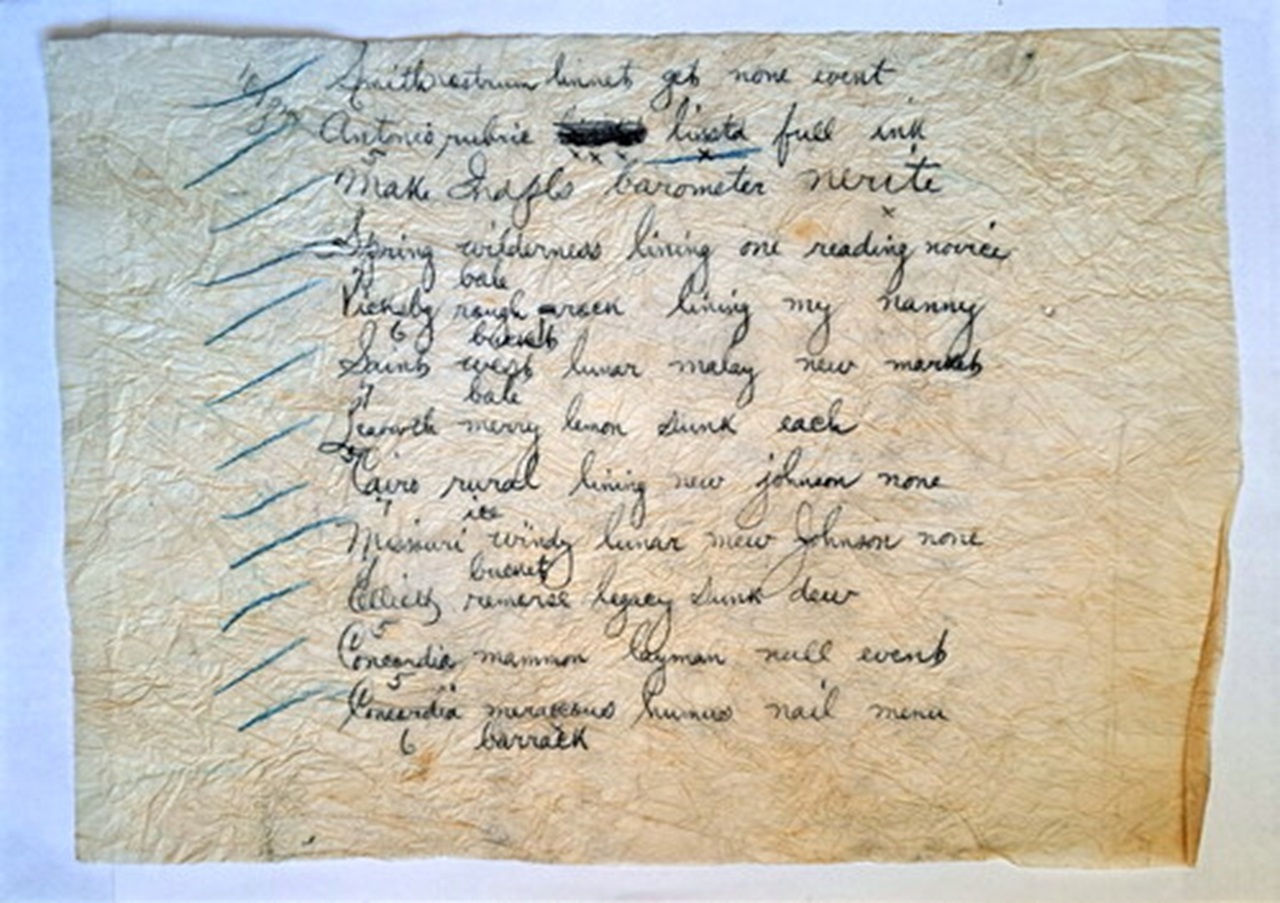 Smith nostrum linnet get none event
Antonio rubric livsta full ink
Make Indpls barometer nerite
Spring wilderness lining one reading novice
7 bale
Vicksbg rough rack lining my nanny
6 bucket
Saint west lunar malay new market
7 bale
Leavwth merry lemon sunk each
Cairo rural lining new johnson none
7 ice
Missouri windy lunar mew Johnson none
bucket
Elliott remorse legacy sunk dew
5
Concordia mammon layman null event
5
Concordia meraceous humus nail menu
6 barrack